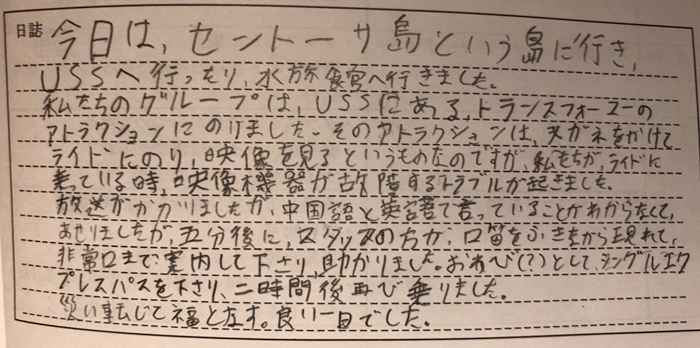 日誌 今日は、セントーサ島という島に行き、
USSへ行ったり、水族館へ行きました。
私たちのグループは、USSにある、トランスフォーマーの
アトラクションにのりました。そのアトラクションは、メガネをかけて
ライドにのり、映像を見るというものなのですが、私たちが、ライドに
乗っている時、映像機器が故障するトラブルが起きました。
放送がかかりましたが、中国語と英語で言っていることがわからなくて、
あせりましたが、五分後に、スタッフの方が、口笛をふきながら現れて、
非常口まで案内して下さり、助かりました。おわび(?)として、シングルエク
プレスパスを下さり、二時間後再び乗りました。
災い転じて福と左す。良い一日でした。